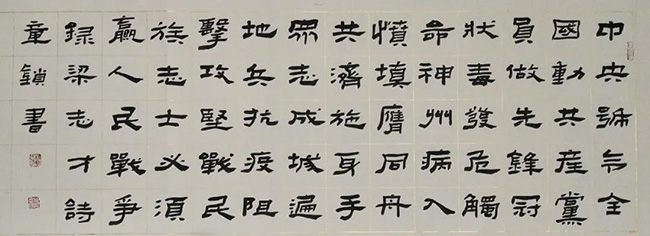 中央號令全
國動共產黨
員做先鋒冠
狀毒發危觸
命神州病入
憤填膺同舟
共濟施身手
眾志成城遍
地兵抗疫阻
擊攻堅戰民
族志士必須
贏人民戰爭
錄梁志才詩
童鎖書